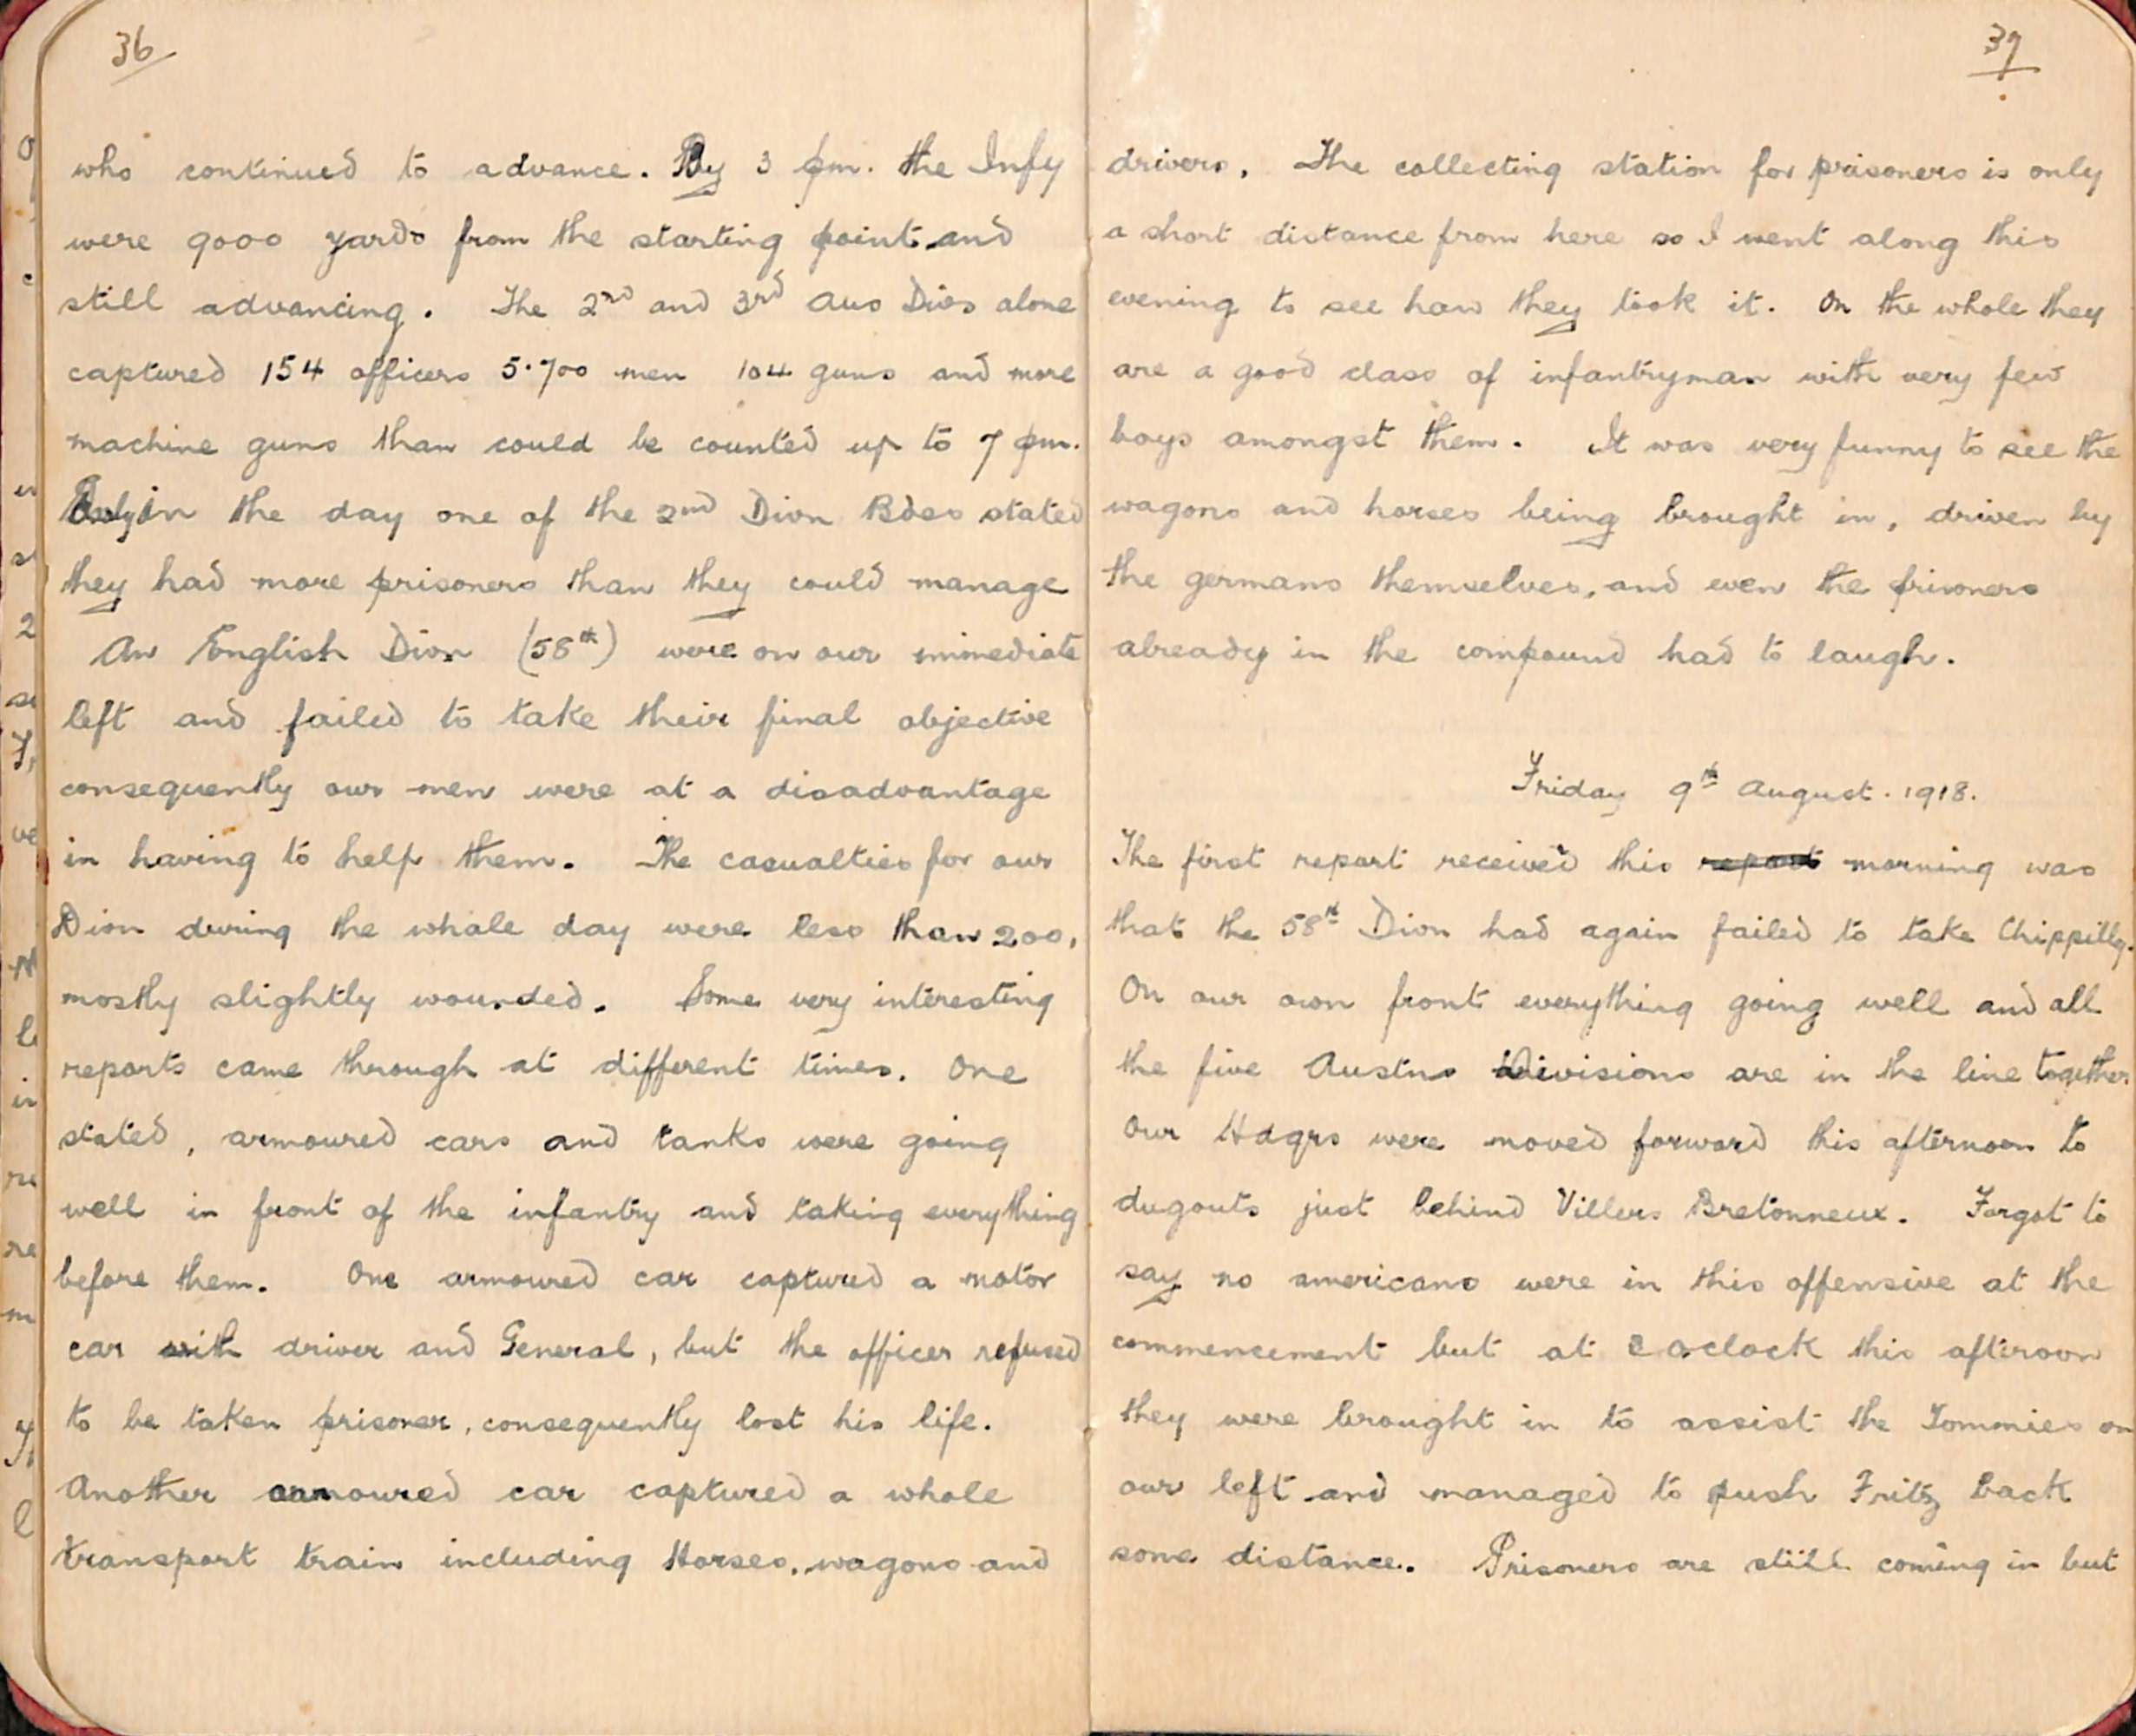 36
who continued to advance. By 3 pm. the Infy
were 9000 yards from the starting point and
still advancing. The 2nd and 3rd Aus Divs alone
captured 154 officers 5.700 men 104 guns and more
machine guns than could be counted up to 7 pm.
Early in the day one of the 2nd Divn Bdes stated
they had more prisoners than they could manage
An English Divn (58th) were on our immediate
left and failed to take their final objective
consequently our men were at a disadvantage
in having to help them. The casualties for our
Divn during the whole day were less than 200,
mostly slightly wounded. Some very interesting
reports came through at different times. One
stated, armoured cars and tanks were going
well in front of the infantry and taking everything
before them. One armoured car captured a motor
car with driver and General, but the officer refused
to be taken prisoner, consequently lost his life.
Another armoured car captured a whole
transport train including Horses, wagons and
37
drivers. The collecting station for prisoners is only
a short distance from here so I went along this
evening to see how they took it. On the whole they
are a good class of infantryman with very few
boys amongst them. It was very funny to see the
wagons and horses being brought in, driven by
the germans themselves, and even the prisoners
already in the compound had to laugh.
Friday 9th August. 1918.
The first report received this report morning was
that the 58th Divn had again failed to take Chippilly.
On our own front everything going well and all
the five Austns Divisions are in the line together
Our Hdqrs were moved forward this afternoon to
dugouts just behind Villers Bretonneux. Forgot to
say no americans were in this offensive at the
commencement but at 2 oclock this afteroon
they were brought in to assist the Tommies on
our left and managed to push Fritz back
some distance. Prisoners are still coming in but